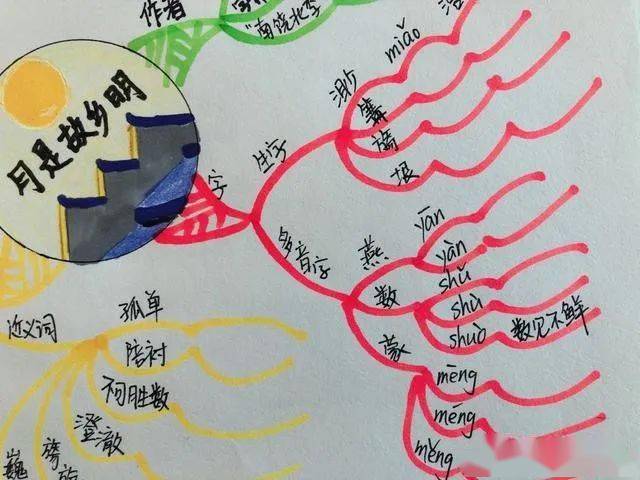 作者
"南饶北季
月是故乡明
字
生字
渺
miǎo
篝
旖
垠
多音字
燕
yān
yàn
数
shǔ
shù
shuò
数见不鲜
蒙
mēng
mēng
měng
近义词
孤单
陪衬
胜数
澄澈
旖
巍